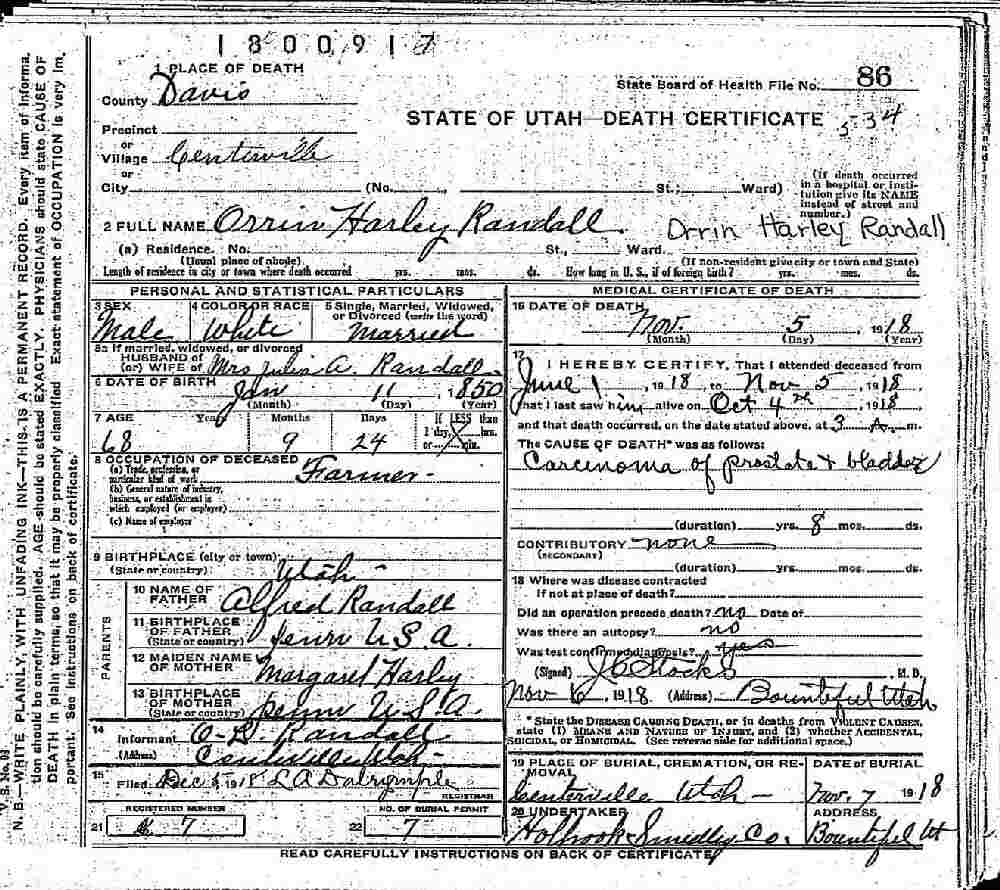 1800917
1 PLACE OF DEATH
State Board of Health File No. 86
County Davis
STATE OF UTAH—DEATH CERTIFICATE 534
Precinct
or
Village Centerville
or
City (No. , St.; Ward)
(If death occurred in a hospital or institution give its NAME instead of street and number.)
2 FULL NAME Orrin Harley Randall. Orrin Harley Randall
(a) Residence. No. St., Ward.
(Usual place of abode) (If non-resident give city or town and State)
Length of residence in city or town where death occurred yrs. mos. ds. How long in U. S., if of foreign birth? yrs. mos. ds.
PERSONAL AND STATISTICAL PARTICULARS
3 SEX 4 COLOR OR RACE 5 Single, Married, Widowed, or Divorced (write the word)
Male White Married
5a If married, widowed, or divorced
HUSBAND of
(or) WIFE of Mrs Julia A. Randall
6 DATE OF BIRTH Jan 11 1850
(Month) (Day) (Year)
7 AGE Years Months Days If LESS than
1 day, hrs.
68 9 24 or min.
8 OCCUPATION OF DECEASED
(a) Trade, profession, or
particular kind of work Farmer
(b) General nature of industry,
business, or establishment in
which employed (or employer)
(c) Name of employer
9 BIRTHPLACE (city or town)
(State or country) Utah
PARENTS
10 NAME OF
FATHER Alfred Randall
11 BIRTHPLACE
OF FATHER
(State or country) Penn U.S.A.
12 MAIDEN NAME
OF MOTHER Margaret Harley
13 BIRTHPLACE
OF MOTHER
(State or country) Penn U.S.A.
14
Informant O. Randall
(Address) Centerville Utah
15
Filed Dec 191 L A Dalrymple
REGISTRAR
REGISTERED NUMBER NO. OF BURIAL PERMIT
21 7 22 7
MEDICAL CERTIFICATE OF DEATH
16 DATE OF DEATH
Nov. 5 1918
(Month) (Day) (Year)
17
I HEREBY CERTIFY, That I attended deceased from
June 1, 1918 to Nov 5, 1918
that I last saw him alive on Oct 4th, 1918
and that death occurred, on the date stated above, at 3 A. m.
The CAUSE OF DEATH* was as follows:
Carcinoma of prostate & bladder
(duration) yrs. 8 mos. ds.
CONTRIBUTORY none
(SECONDARY)
(duration) yrs. mos. ds.
18 Where was disease contracted
If not at place of death?
Did an operation precede death? no Date of
Was there an autopsy? no
Was test confirmed diagnosis? yes
(Signed) J C Stocks M. D.
Nov 6, 1918 (Address) Bountiful Utah
*State the DISEASE CAUSING DEATH, or in deaths from VIOLENT CAUSES,
state (1) MEANS AND NATURE OF INJURY, and (2) whether ACCIDENTAL,
SUICIDAL, or HOMICIDAL. (See reverse side for additional space.)
19 PLACE OF BURIAL, CREMATION, OR REMOVAL DATE OF BURIAL
Centerville Utah Nov. 7 1918
20 UNDERTAKER ADDRESS
Holbrook Smedley Co. Bountiful Ut
READ CAREFULLY INSTRUCTIONS ON BACK OF CERTIFICATE
V. S. No.
N. B.—WRITE PLAINLY, WITH UNFADING INK—THIS IS A PERMANENT RECORD. Every item of informa-
tion should be carefully supplied. AGE should be stated EXACTLY. PHYSICIANS should state CAUSE OF
DEATH in plain terms, so that it may be properly classified. Exact statement of OCCUPATION is very im-
portant. See instructions on back of certificate.